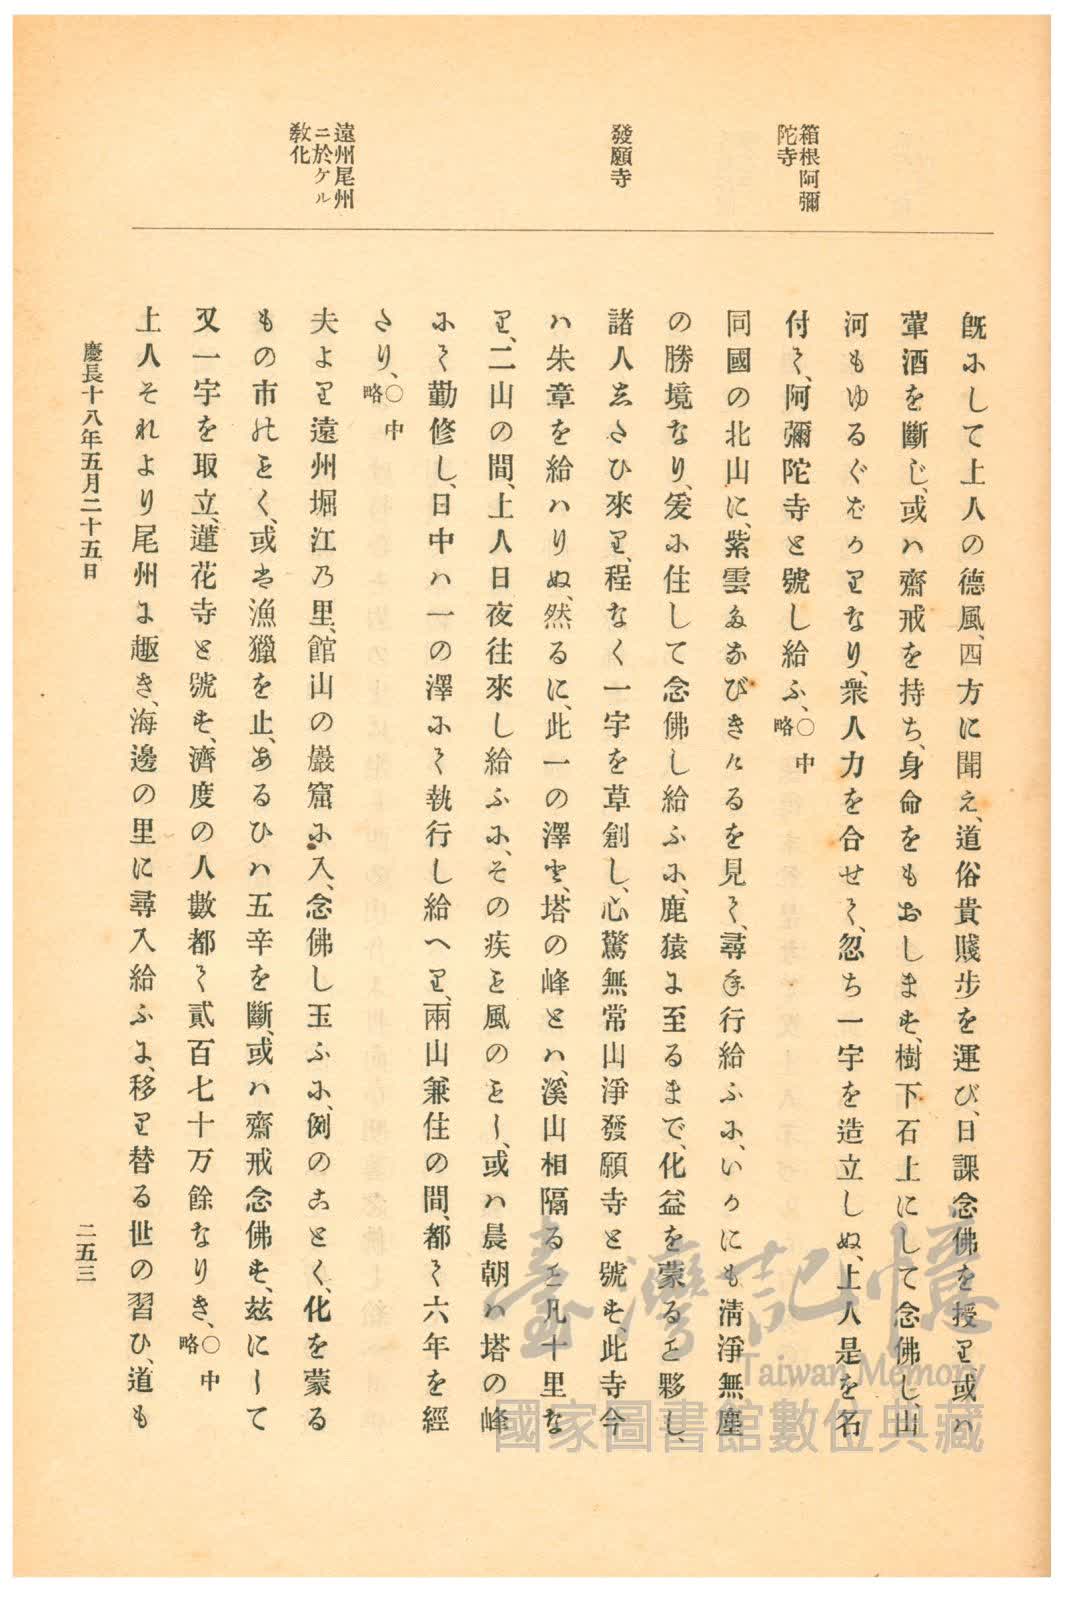 箱根阿彌
陀寺
發願寺
遠州尾州
ニ於ケル
敎化
既にして上人の德風、四方に聞え、道俗貴賤步を運び、日課念佛を授り或ハ
葷酒を斷じ、或ハ齋戒を持ち、身命をもおしまず、樹下石上にして念佛し、山
河もゆるぐばかりなり、衆人力を合せて、忽ち一宇を造立しぬ、上人是を名
付て、阿彌陀寺と號し給ふ、〇中略
同國の北山に、紫雲たなびきけるを見て、尋ね行給ふに、いかにも淸淨無塵
の勝境なり、爰に住して念佛し給ふに、鹿猿に至るまで、化益を蒙ること夥し、
諸人したひ來り、程なく一宇を草創し、心驚無常山淨發願寺と號す、此寺今
ハ朱章を給ハりぬ、然るに、此一の澤と、塔の峰とハ、溪山相隔ること凡十里な
り、二山の間、上人日夜往來し給ふに、その疾こと風のことし、或ハ晨朝ハ塔の峰
にて勤修し、日中ハ一の澤にて執行し給へり、兩山兼住の間、都て六年を經
たり、〇中略
夫より遠州堀江乃里、館山の巖窟に入、念佛し玉ふに、例のことく、化を蒙る
もの市のことく、或は漁獵を止、あるひハ五辛を斷、或ハ齋戒念佛す、玆にして
又一宇を取立、蓮花寺と號す、濟度の人數都て貳百七十万餘なりき、〇中略
上人それより尾州に趣き、海邊の里に尋入給ふに、移り替る世の習ひ、道も
慶長十八年五月二十五日
二五三
臺灣記憶
Taiwan Memory
國家圖書館數位典藏